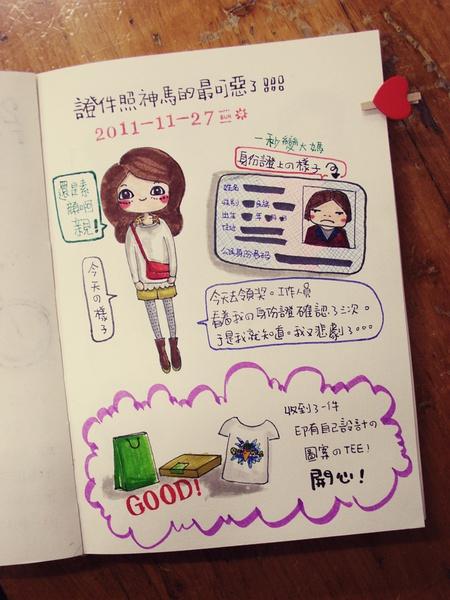 證件照神馬的最可惡了!!!
2011-11-27 SUN
一秒變大媽
身份證上の樣子
還是素
顏啊
親!
姓名
性別 民族
出生 年 月 日
住址
公民身份號碼
今天の樣子
今天去領獎。工作人員
看著我の身份證確認了三次。
于是我就知道。我又悲劇了。。。
收到了一件
印有自己設計の
圖案のTEE!
開心!
GOOD!